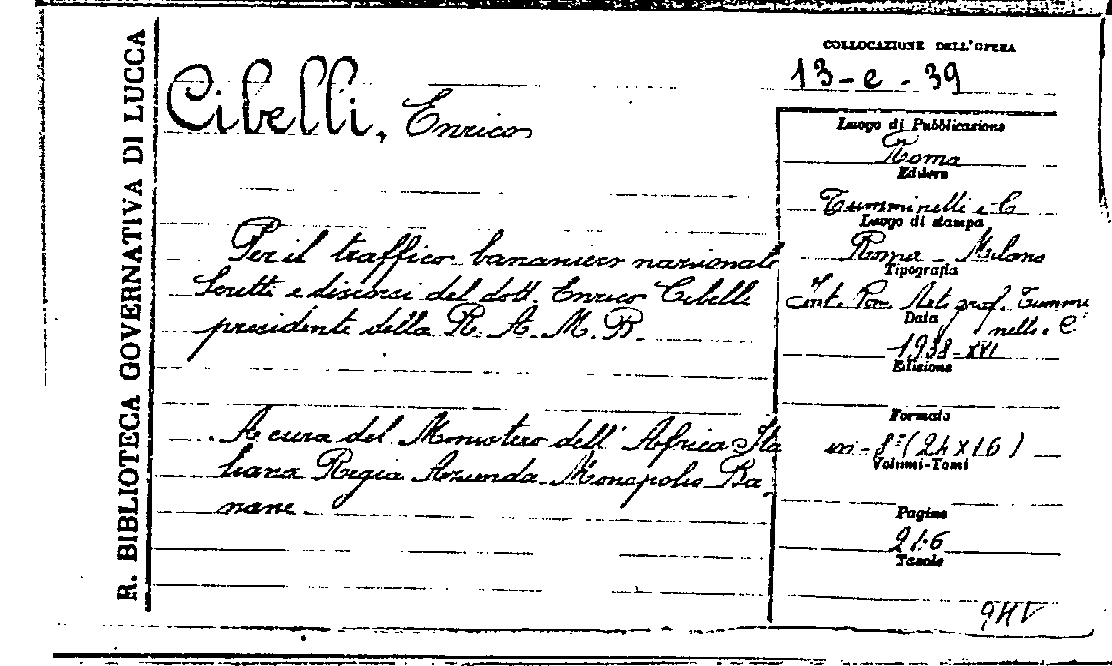 R. BIBLIOTECA GOVERNATIVA DI LUCCA
Cibelli, Enrico
Per il traffico bananiero nazionale
Scritti e discorsi del dott. Enrico Cibelli
presidente della R. A. M. B.
A cura del Ministero dell' Africa Ita
liana Regia Azienda Monopolio Ba-
nane
COLLOCAZIONE DELL'OPERA
13-e-39
Luogo di Pubblicazione
Roma
Editore
Tumminelli e C
Luogo di stampa
Roma - Milano
Tipografia
Rom. Art. prof. Tummi
nelli e C
Data
1938-XVI
Edizione
Formato
in-8° (24x16)
Volumi-Tomi
Pagine
216
Tavole